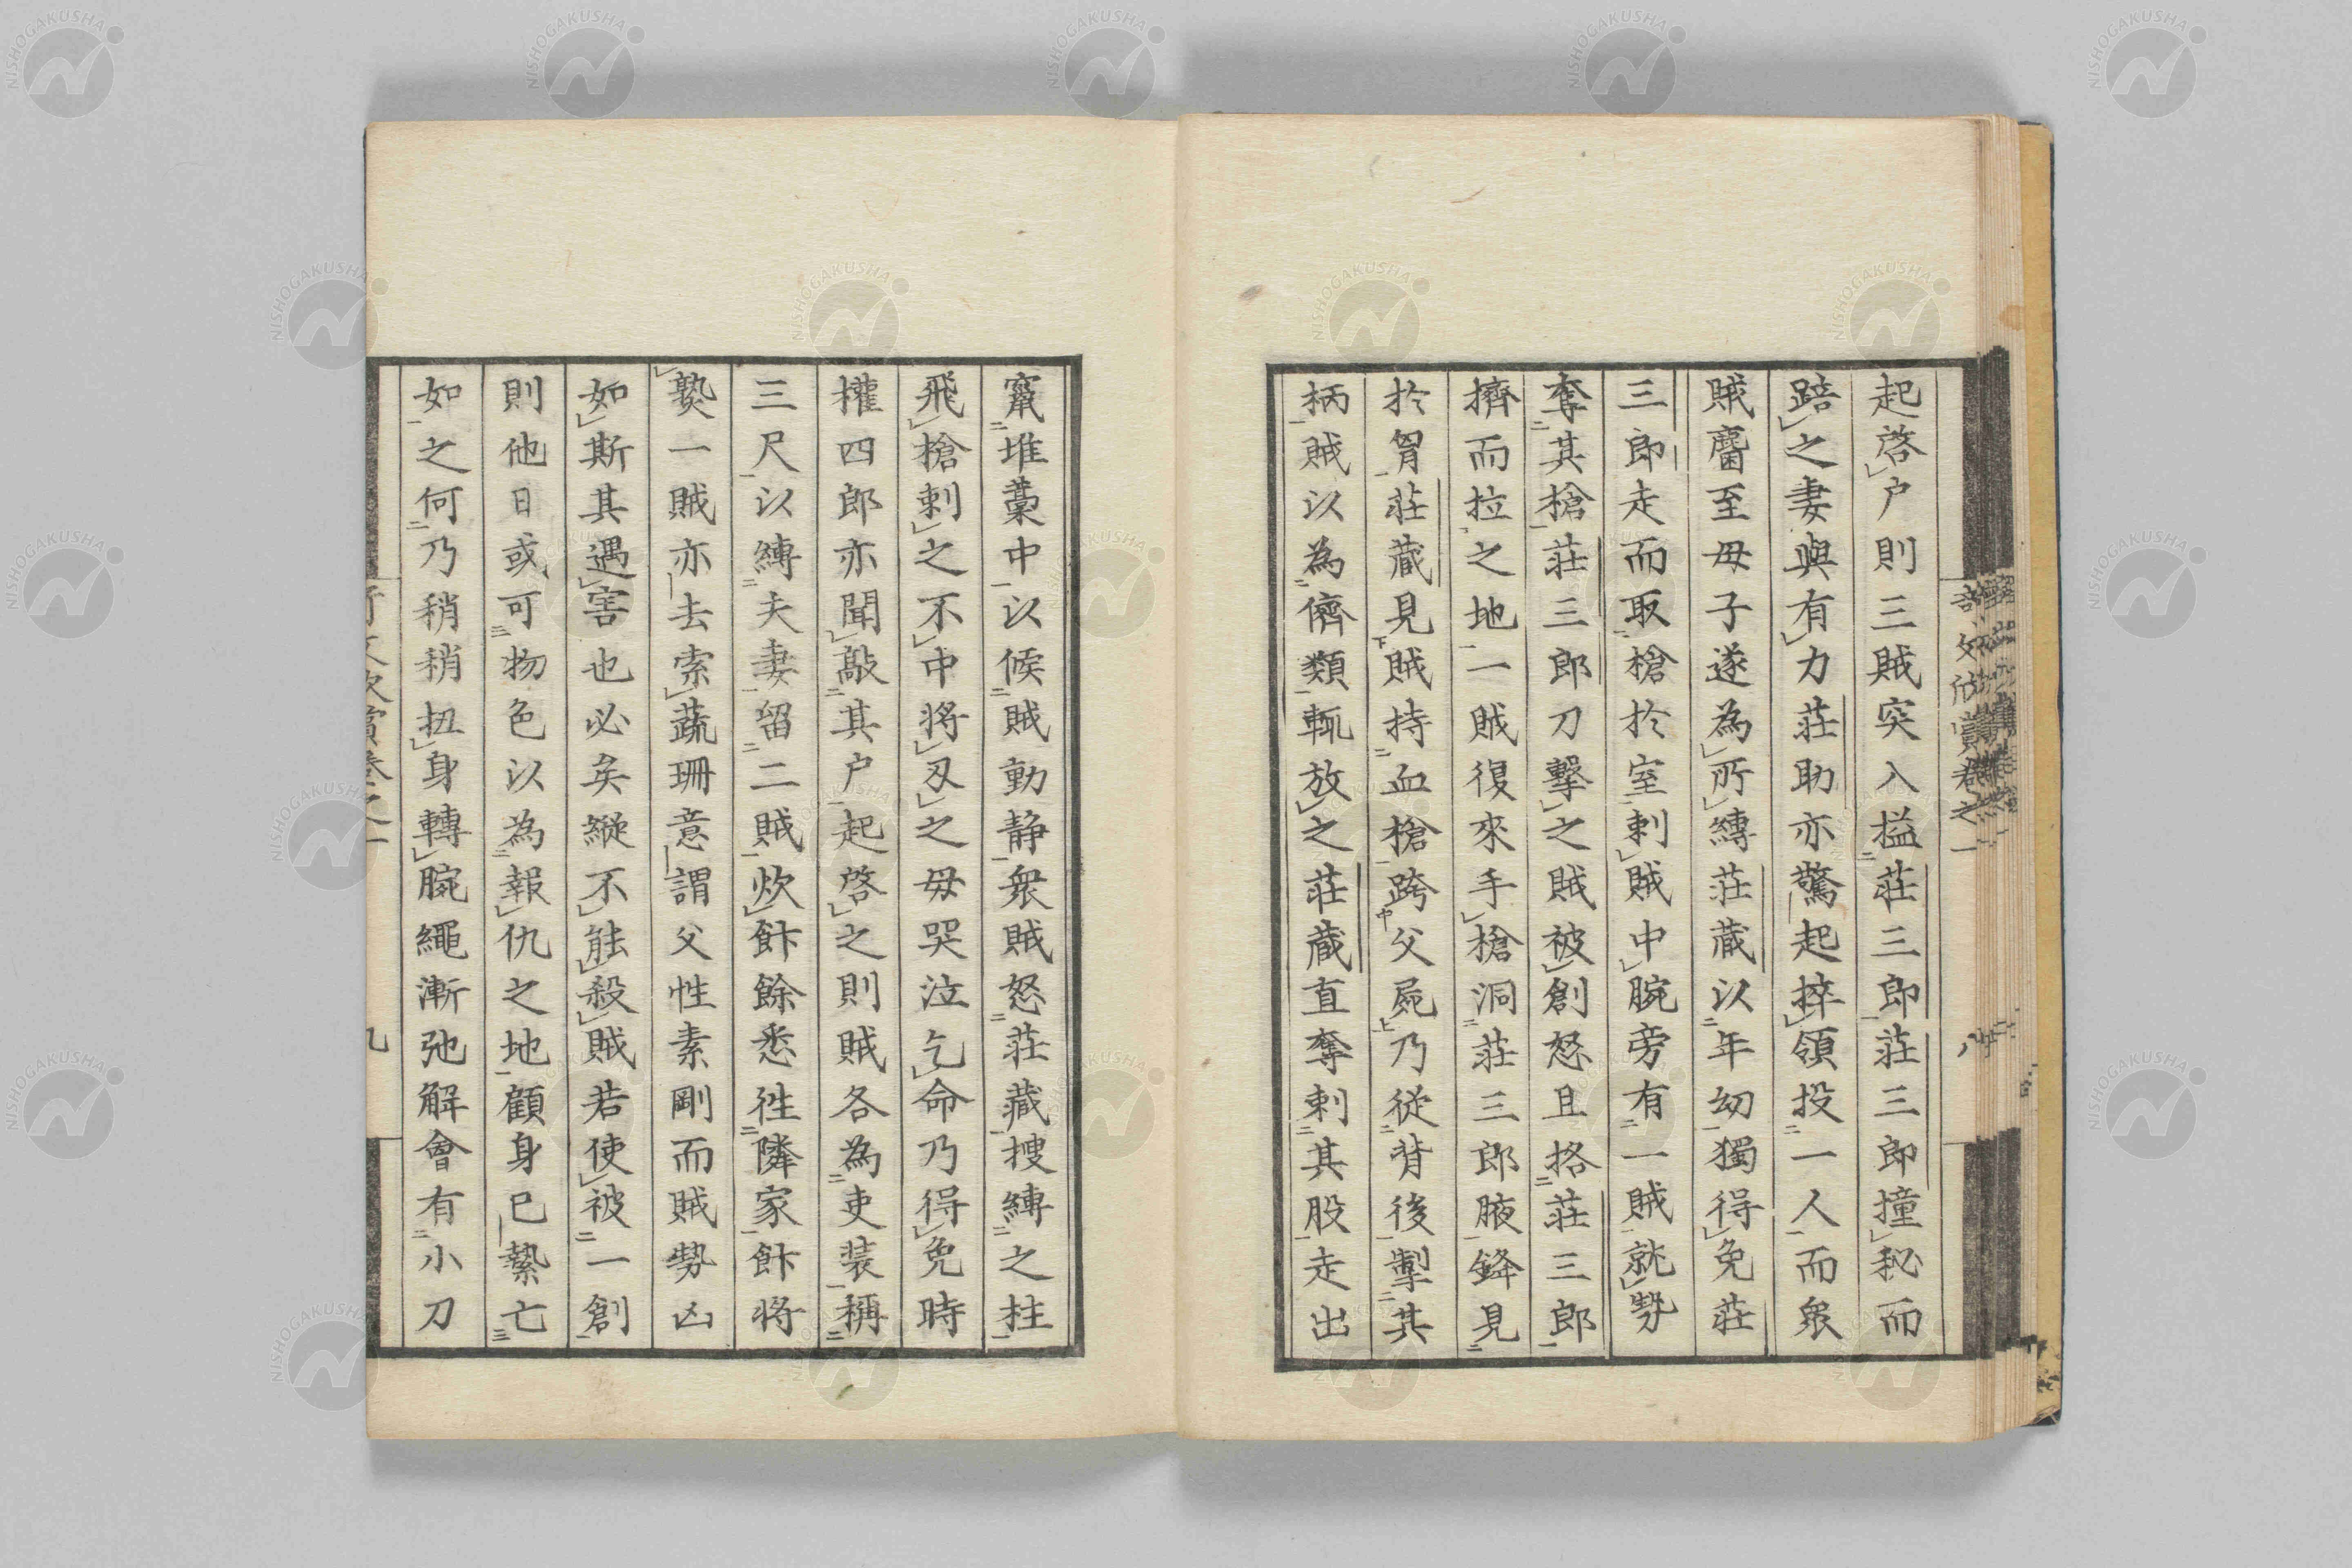 起啓戸則三賊突入搤莊三郎莊三郎撞秘而
踣之妻與有力莊助亦驚起捽領投一人而衆
賊麕至母子遂為所縛莊蔵以年幼獨得免莊
三郎走而取槍於室刺賊中腕旁有一賊就勢
奪其槍莊三郎刀擊之賊被創怒且挌莊三郎
擠而拉之地一賊復來手槍洞莊三郎腋鋒見
於胷莊蔵見賊持血槍跨父屍乃從背後掣其
柄賊以為儕類輒放之莊蔵直奪刺其股走出
竄堆藁中以候賊動静衆賊怒莊藏搜縛之柱
飛槍刺之不中将刄之母哭泣乞命乃得免時
權四郎亦聞敲其戸起啓之則賊各為吏装稱
三尺以縛夫妻留二賊炊餅餘悉徃隣家餅将
爇一賊亦去索蔬珊意謂父性素剛而賊勢凶
如斯其遇害也必矣縱不能殺賊若使被一創
則他日或可物色以為報仇之地顧身已縶亡
如之何乃稍稍扭身轉腕繩漸弛解會有小刀